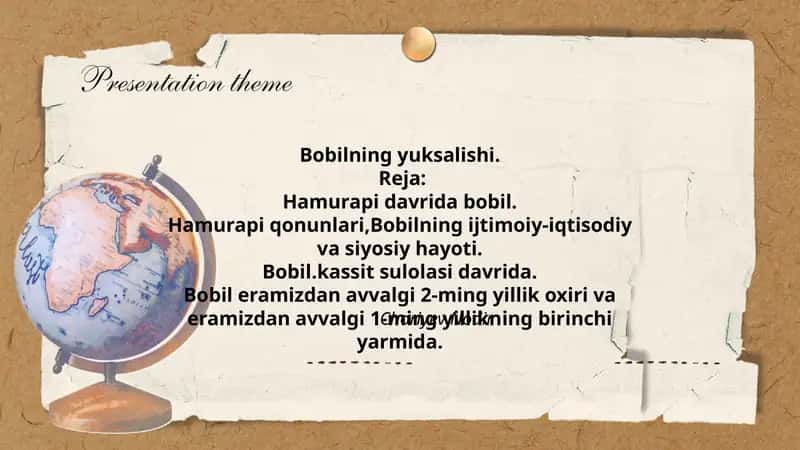 Presentation theme
Bobilning yuksalishi.
Reja:
Hamurapi davrida bobil.
Hamurapi qonunlari,Bobilning ijtimoiy-iqtisodiy
va siyosiy hayoti.
Bobil.kassit sulolasi davrida.
Bobil eramizdan avvalgi 2-ming yillik oxiri va
eramizdan avvalgi 1-ming yillikning birinchi
yarmida.